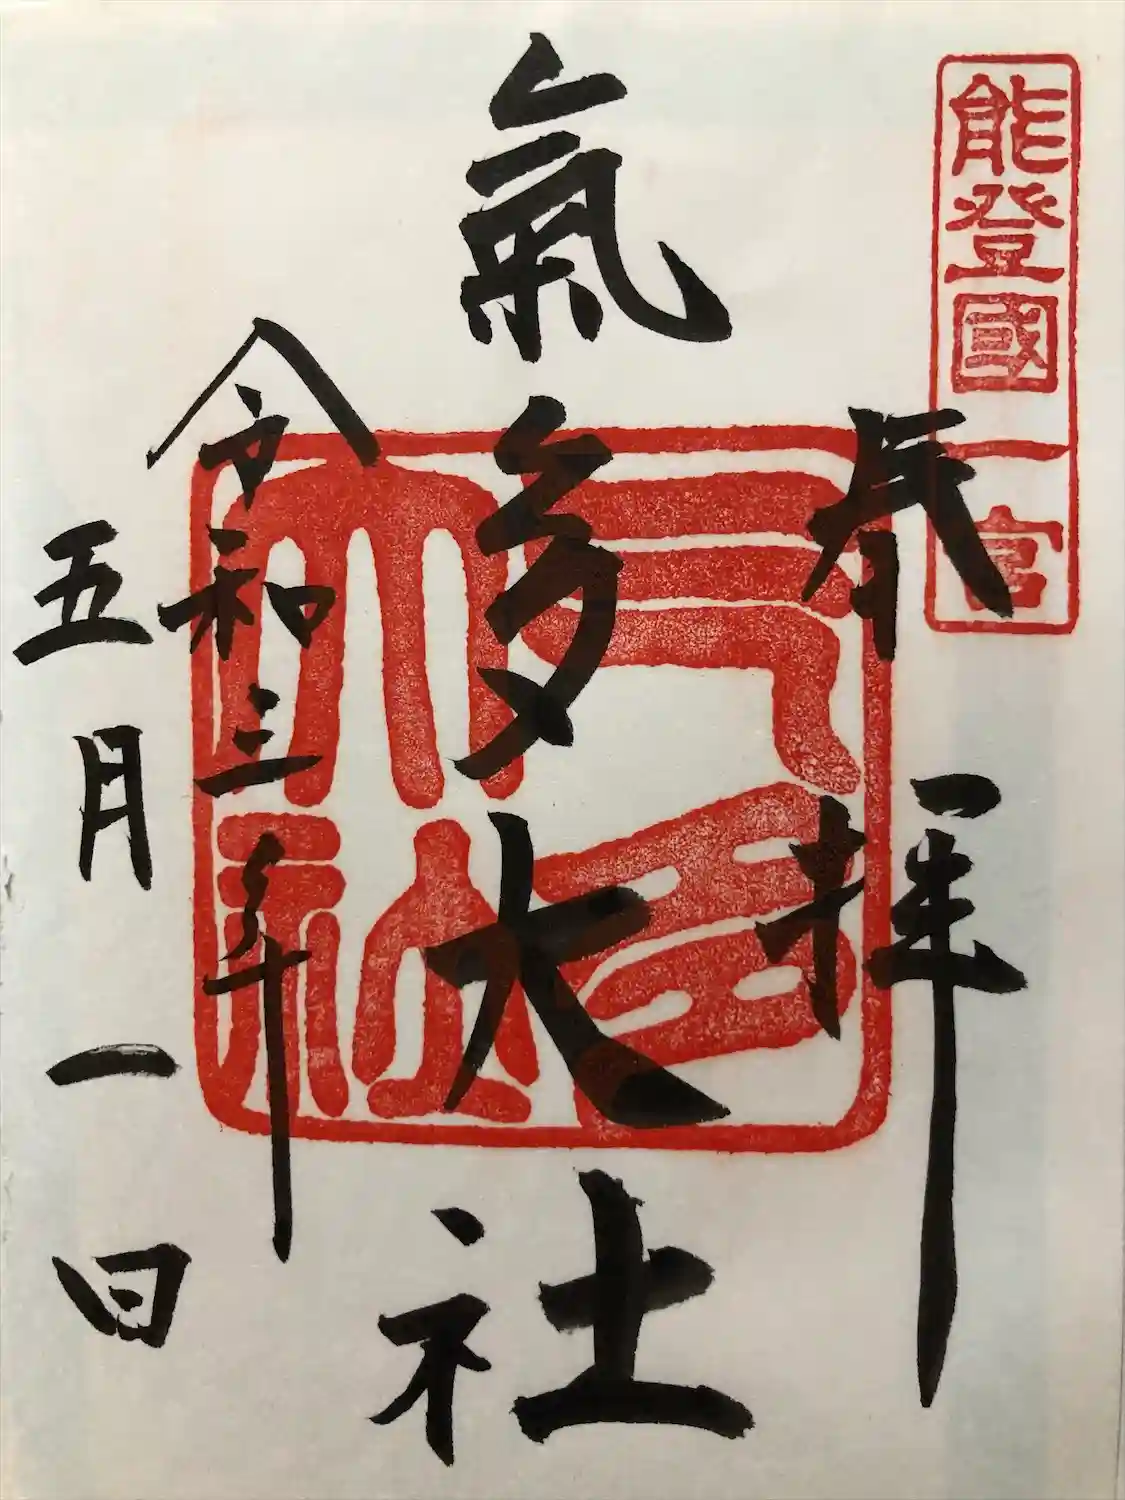 能登國一宮
奉拝
氣多大社
令和三年
五月一日
氣多大社